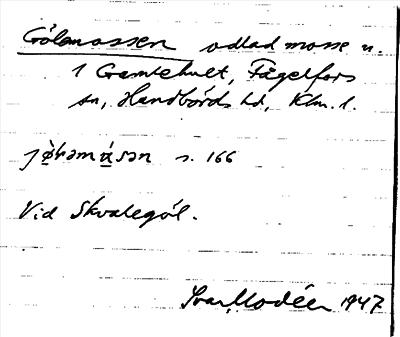 Gölsmossen odlad mosse u.
1 Gramtehult, Fågelfors
sn, Handbörds hd, Klm. l.
s. 166
Vid Skvalegöl.
Ivar Modéer 1947